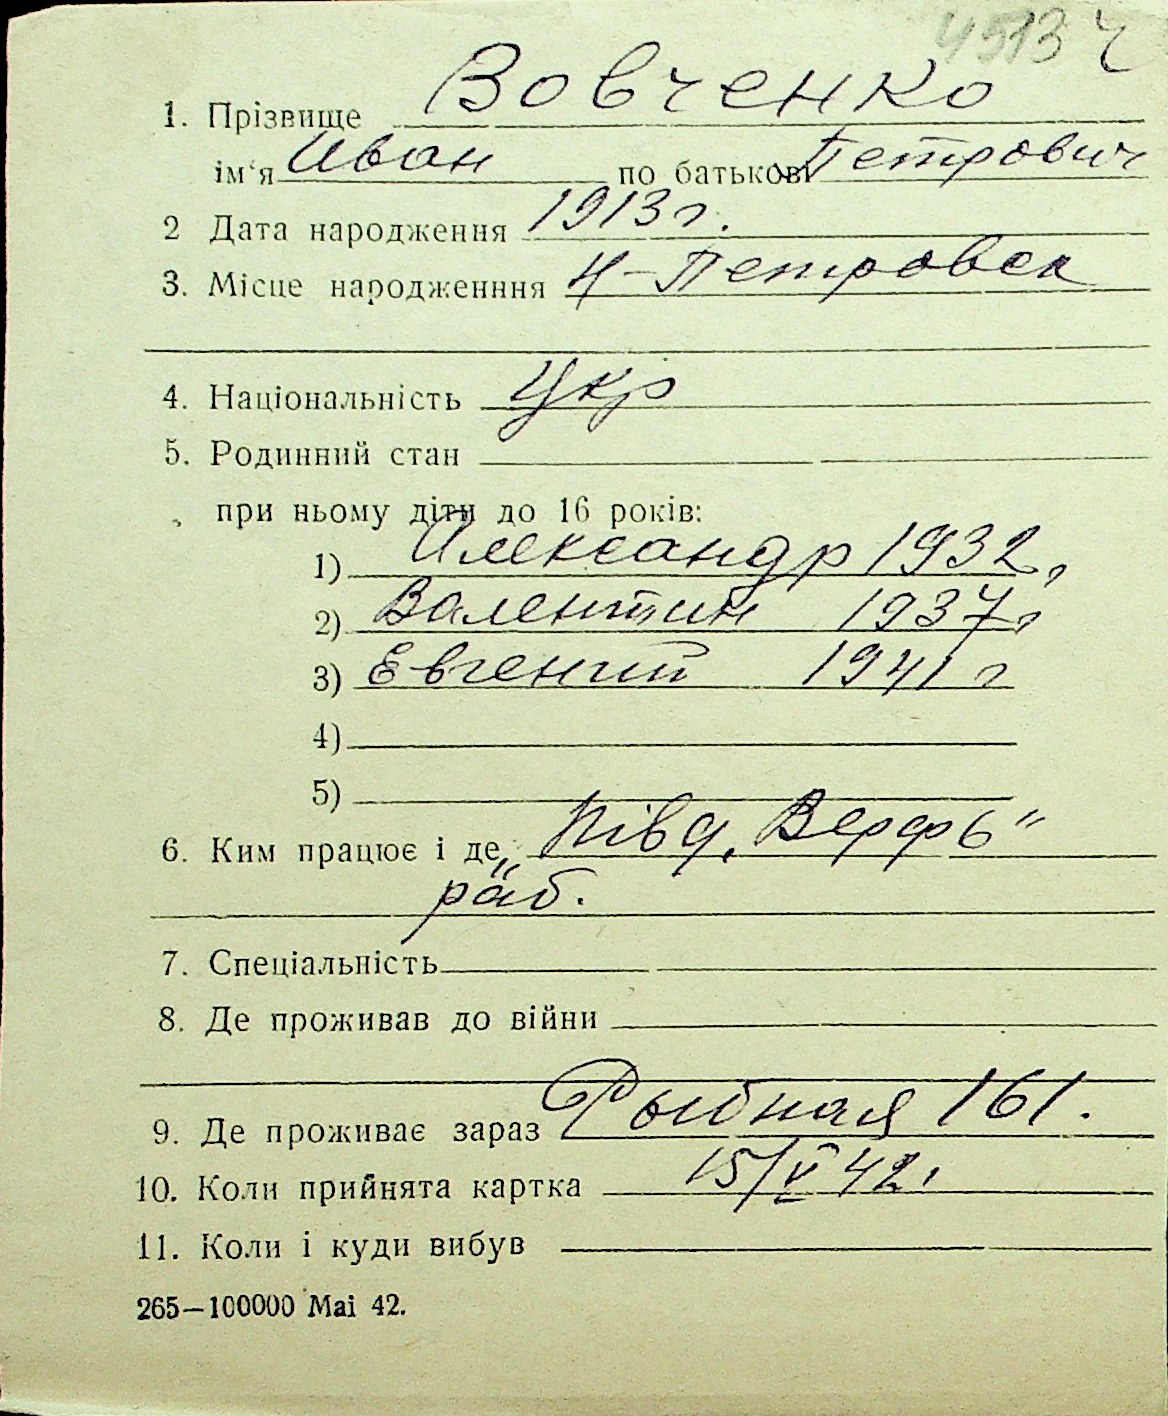 4513 ч
1. Прізвище Вовченко
ім‘я Иван по батькові Петрович
2 Дата народження 1913 г.
3. Місце народженння Н-Петровск
4. Національність Укр
5. Родинний стан
при ньому діти до 16 років:
1) Александр 1932 г
2) Валентин 1937 г
3) Евгений 1941 г
4)
5)
6. Ким працює і де „Півд. Верфь“
раб.
7. Спеціальність
8. Де проживав до війни
9. Де проживає зараз Рыбная 161.
10. Коли прийнята картка 15/V 42.
11. Коли і куди вибув
265—100000 Mai 42.